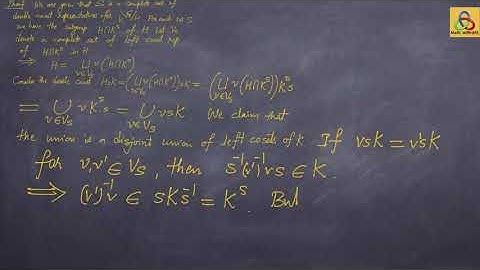 Proof We are given that S is a complete set of
double coset representatives for H\G/K. For each s∈S
we have the subgroup H∩K^s of H. Let V_s
denote a complete set of left coset rep
of H∩K^s in H
⇒ H = ⊔_{v∈V_s} v(H∩K^s)
Consider the double coset HsK = (⊔_{v∈V_s} v(H∩K^s))sK = (⊔_{v∈V_s} v(H∩K^s))K^s s
= ∪_{v∈V_s} v K^s s = ∪_{v∈V_s} vsK We claim that
the union is a disjoint union of left cosets of K If vsK = v'sK
for v,v' ∈ V_s, then s^{-1}(v')^{-1}vs ∈ K.
⇒ (v')^{-1}v ∈ sKs^{-1} = K^s. But